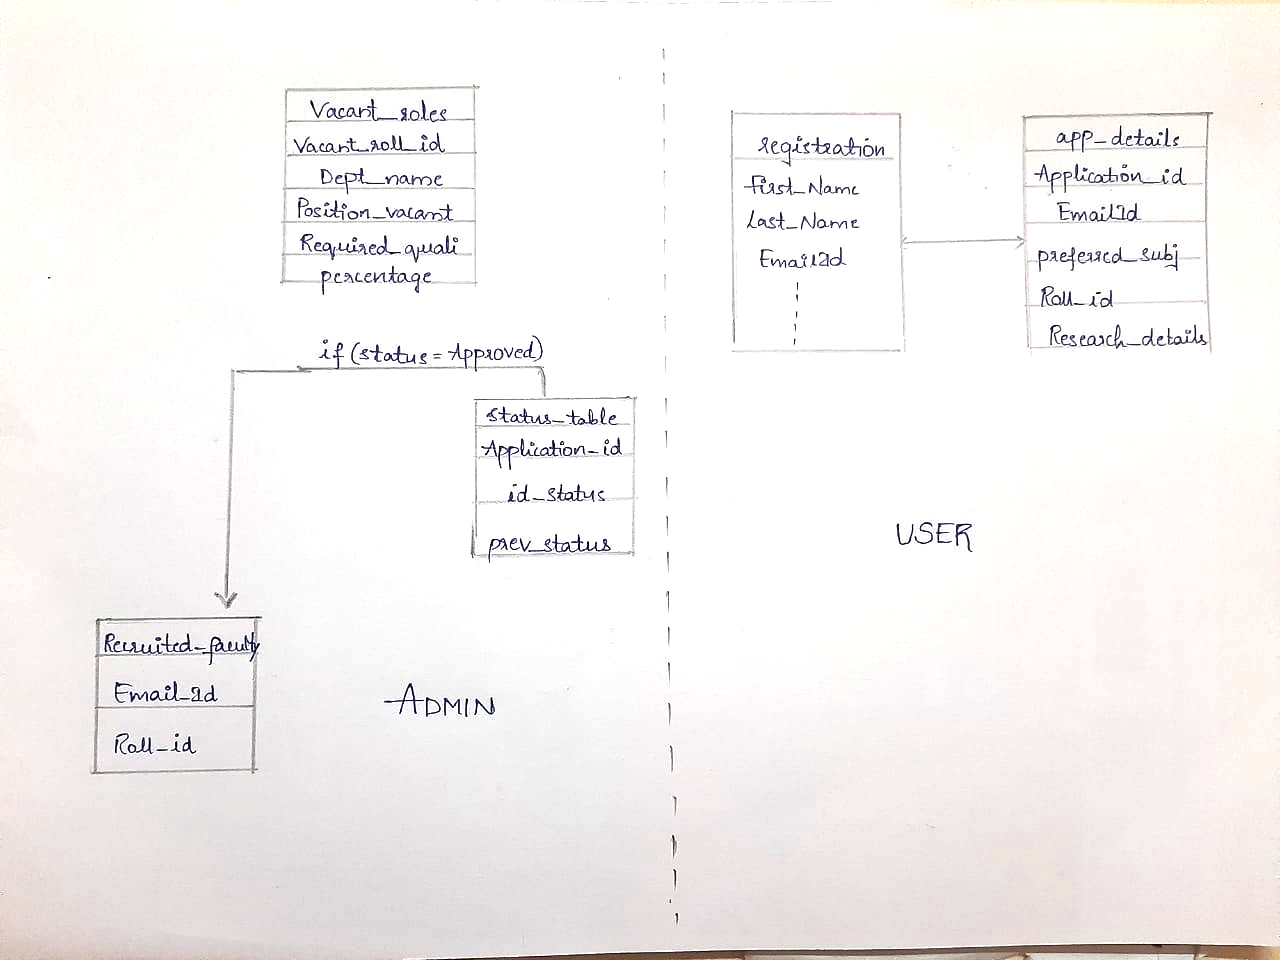 Vacant_roles
Vacant_roll_id
Dept_name
Position_vacant
Required_quali
percentage
if (status = Approved)
status_table
Application_id
id_status
prev_status
Recruited_faculty
Email_Id
Roll_id
ADMIN
registration
First_Name
Last_Name
EmailId
app_details
Application_id
EmailId
preferred_subj
Roll_id
Research_details
USER